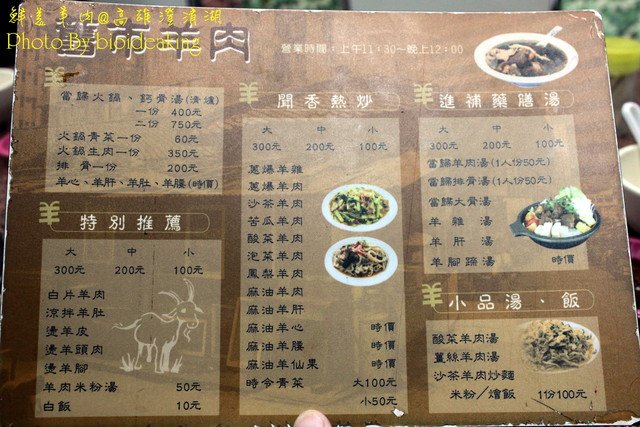 鮮羹羊肉@高雄澄清湖
Photo By bipideaking
羊肉
營業時間：上午11：30～晚上12：00
當歸火鍋、鈣骨湯(清爐)
一份 400元
二份 750元
火鍋青菜一份 60元
火鍋生肉一份 350元
排骨一份 200元
羊心、羊肝、羊肚、羊腰(時價)
特別推薦
大 中 小
300元 200元 100元
白片羊肉
涼拌羊肚
燙羊皮
燙羊頭肉
燙羊腳
羊肉米粉湯 50元
白飯 10元
聞香熱炒
大 中 小
300元 200元 100元
蔥爆羊雜
蔥爆羊肉
沙茶羊肉
苦瓜羊肉
酸菜羊肉
泡菜羊肉
鳳梨羊肉
麻油羊肉
麻油羊肝
麻油羊心 時價
麻油羊腰 時價
麻油羊仙果 時價
時令青菜 大100元
小50元
進補藥膳湯
大 中 小
300元 200元 100元
當歸羊肉湯(1人份50元)
當歸排骨湯(1人份50元)
當歸大骨湯
羊雜湯
羊肝湯
羊腳蹄湯 時價
小品湯、飯
酸菜羊肉湯
薑絲羊肉湯
沙茶羊肉炒麵
米粉／燴飯 1份100元